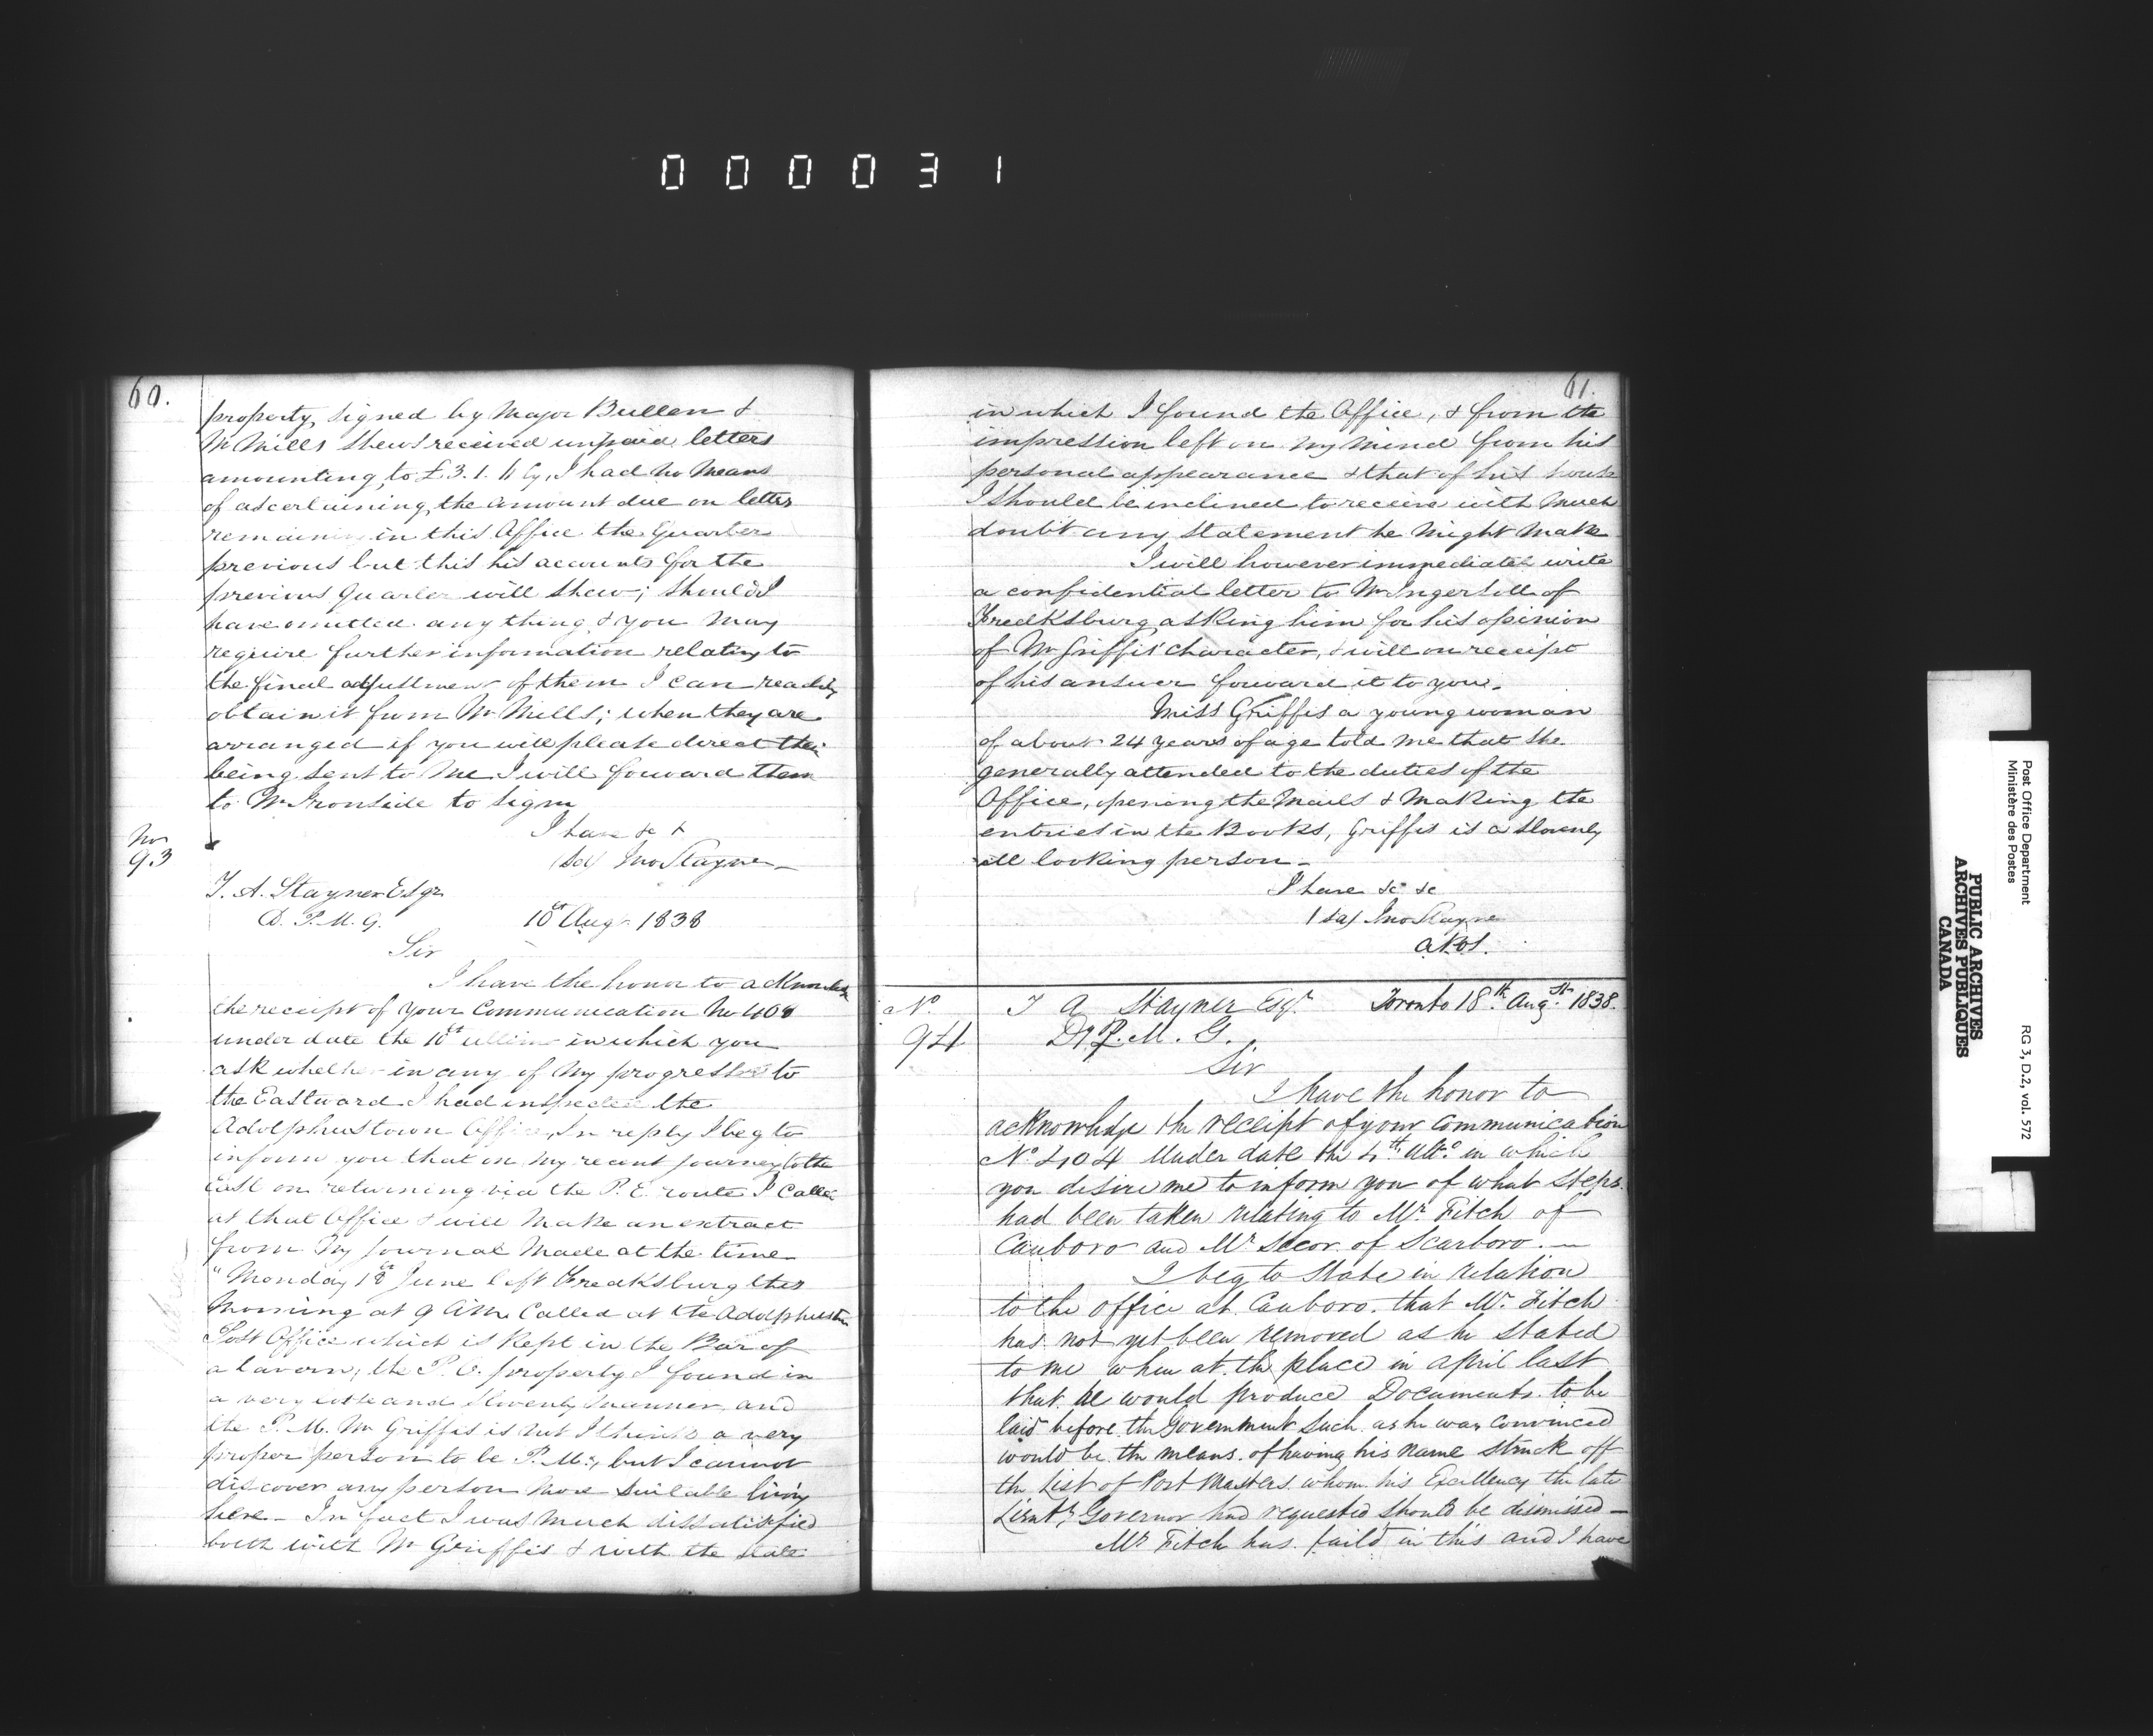 000031
60.
property, signed by Major Bullen &
Mr Mills shews received unpaid letters
amounting to £3.1.11 Cy, I had no means
of ascertaining the amount due on letters
remaining in this Office the Quarter
previous but this his accounts for the
previous Quarter will shew; should I
have omitted any thing & you may
require further information relating to
the final adjustment of them I can readily
obtain it from Mr Mills; when they are
arranged if you will please direct their
being sent to me I will forward them
to Mr Ironside to sign
I have &c &
(sd) Jno Stayner
No
93
T. A. Stayner Esqr
D. P. M. G.
18th Augt 1838
Sir
I have the honor to acknowledge
the receipt of your Communication No 408
under date the 10th ultimo in which you
ask whether in any of my progresses to
the Eastward I had inspected the
Adolphustown Office, In reply I beg to
inform you that on my recent journey to the
East on returning via the P. E. route I called
at that Office & will make an extract
from my journal made at the time
"Monday 18th June left Fredksburg this
morning at 9 AM. Called at the Adolphustn
Post Office which is kept in the Bar of
a tavern; the P. O. property I found in
a very loose and slovenly manner, and
the P. M. Mr Griffis is not I think a very
proper person to be P. M:, but I cannot
discover any person more suitable living
here - In fact I was much dissatisfied
both with Mr Griffis & with the state
61.
in which I found the Office, & from the
impression left on my mind from his
personal appearance & that of his house
I should be inclined to receive with much
doubt any statement he might make
I will however immediately write
a confidential letter to Mr Ingersoll of
Fredksburg, asking him for his opinion
of Mr Griffis' character, & will on receipt
of his answer forward it to you.
Miss Griffis a young woman
of about 24 years of age told me that she
generally attended to the duties of the
Office, opening the Mails & making the
entries in the Books, Griffis is a slovenly
ill looking person -
I have &c &c
(sd) Jno Stayner
No.
94
T A Stayner Esqr. Toronto 18th Augst. 1838.
Dy. P. M. G.
Sir
I have the honor to
acknowledge the receipt of your communication
No. 404 under date the 4th ulto. in which
you desire me to inform you of what steps
had been taken relating to Mr. Fitch of
Canboro and Mr Secor of Scarboro. —
I beg to state in relation
to the office at Canboro. that Mr. Fitch
has not yet been removed as he stated
to me when at the place in April last
that he would produce Documents to be
laid before the Government such as he was convinced
would be the means of having his name struck off
the List of Post Masters whom his Excellency the late
Lieutt. Governor had requested should be dismissed —
Mr Fitch has faild in this and I have
Post Office Department
Ministère des Postes
RG 3, D.2, vol. 572
PUBLIC ARCHIVES
ARCHIVES PUBLIQUES
CANADA